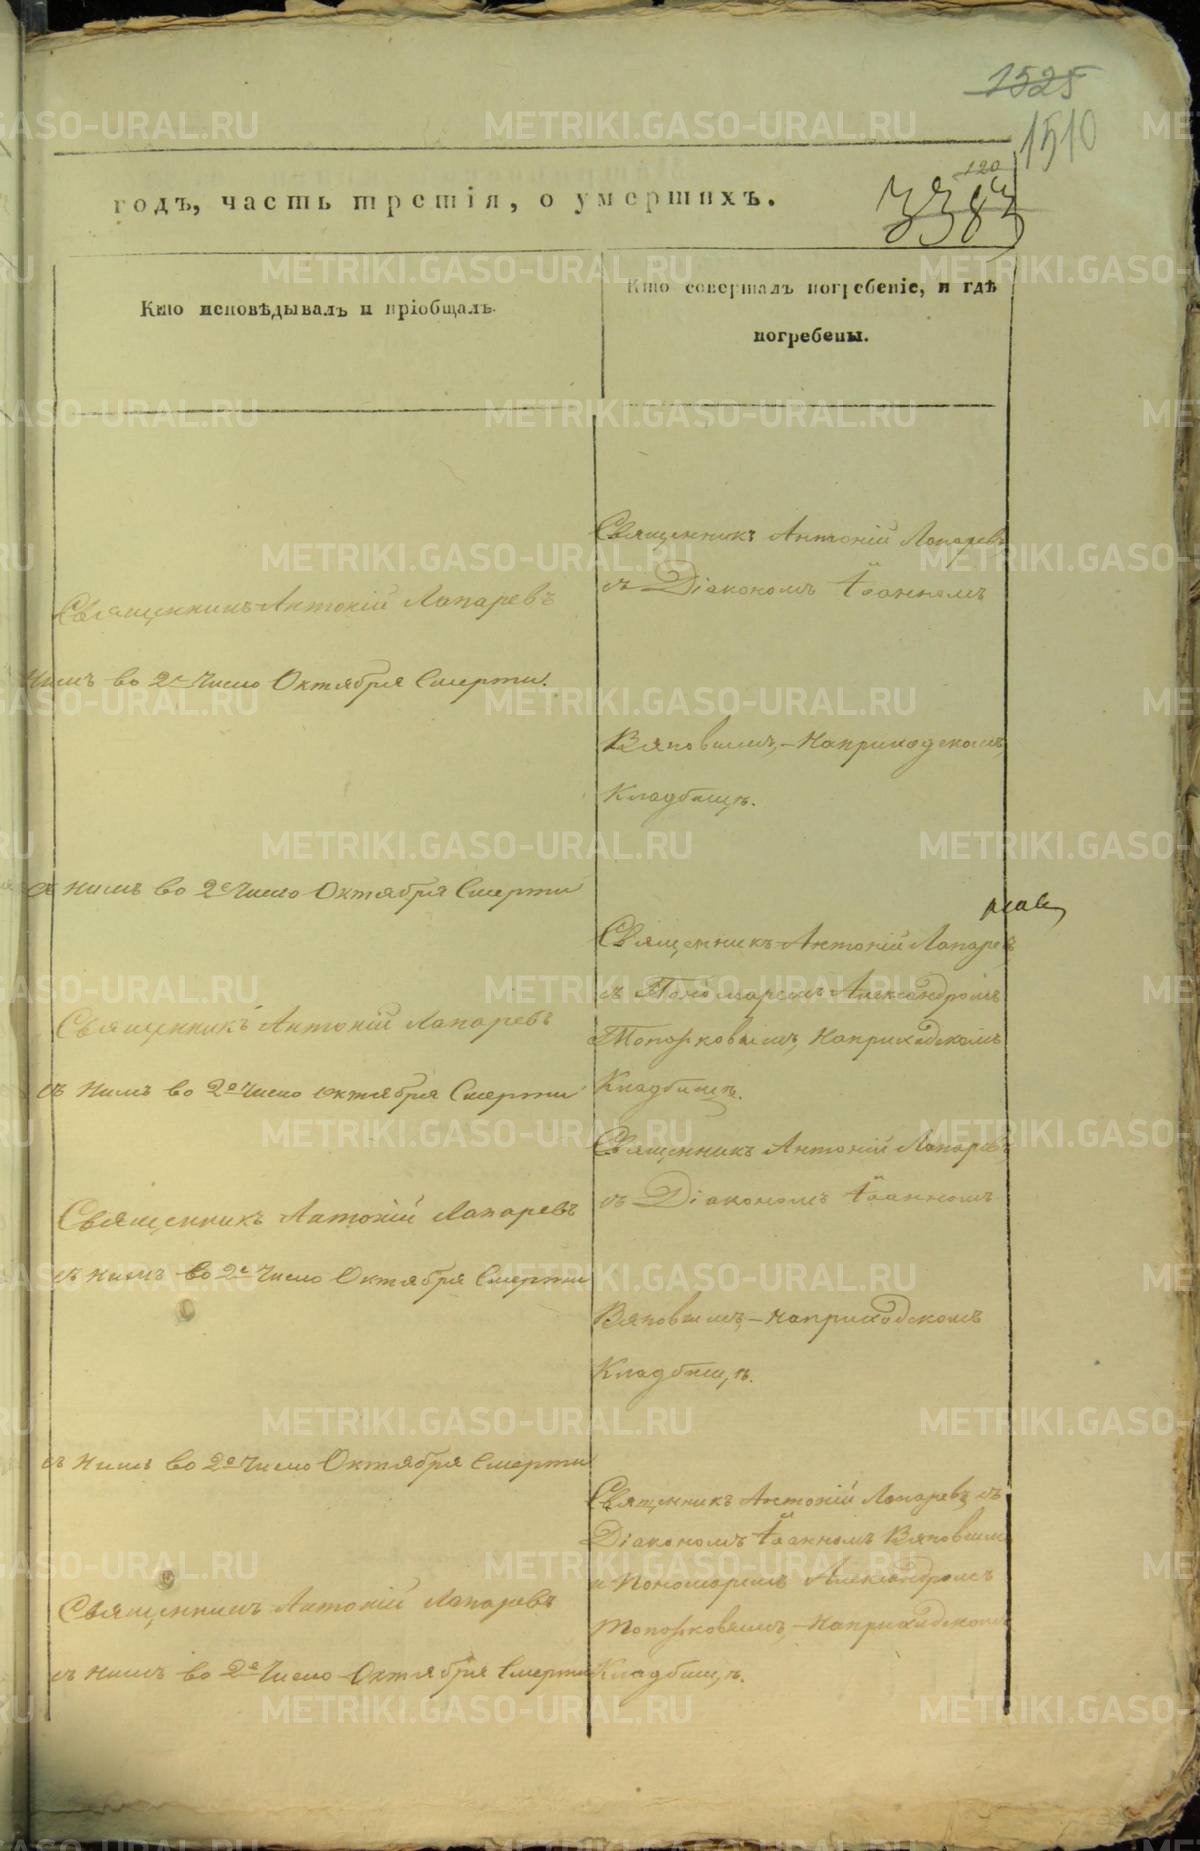 1525
1510
120
3383
годъ, часть третія, о умершихъ.
Кто исповѣдывалъ и пріобщалъ.
Кто совершалъ погребеніе, и гдѣ
погребены.
Священникъ Антоній Лапаревъ
нимъ во 2е число Октября Смерти.
съ нимъ во 2е число Октября Смерти
Священникъ Антоній Лапаревъ
съ нимъ во 2е число октября Смерти
Священникъ Антоній Лапаревъ
съ нимъ во 2е число Октября Смерти
съ нимъ во 2е число Октября Смерти
Священникъ Антоній Лапаревъ
съ нимъ во 2е число Октября Смерти
Священникъ Антоній Лапаревъ
съ Діакономъ Іоанномъ
Вяповымъ, Наприходскомъ
Кладбищѣ.
Священникъ Антоній Лапарев
съ Пономаремъ Александромъ
Топорковымъ, Наприходскомъ
Кладбищѣ.
Священникъ Антоній Лапаревъ
съ Діакономъ Іоанномъ
Вяповымъ, Наприходскомъ
Кладбищѣ.
Священникъ Антоній Лапаревъ съ
Діакономъ Іоанномъ Вяповымъ
и Пономаремъ Александромъ
Топорковымъ, Наприходскомъ
Кладбищѣ.
METRIKI.GASO-URAL.RU